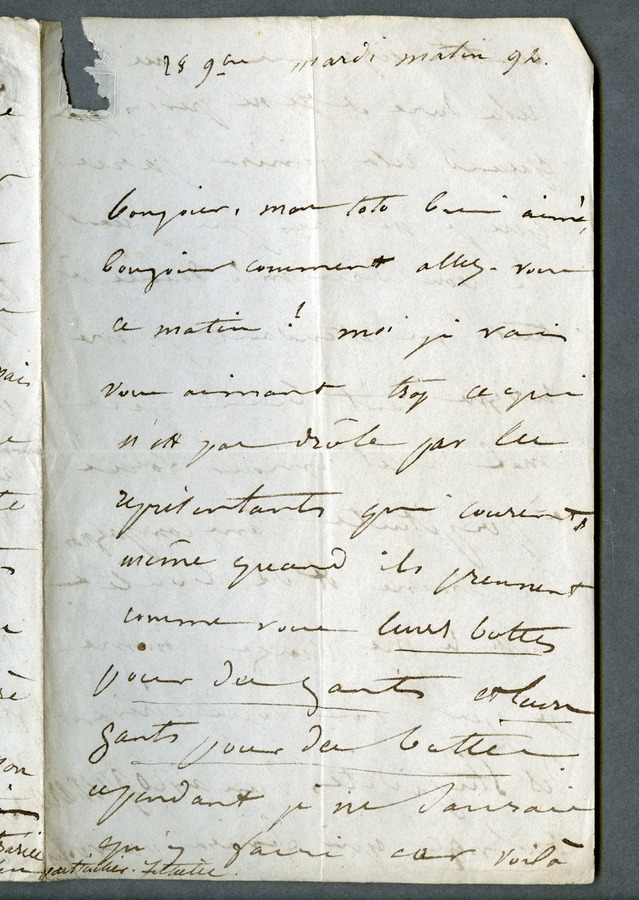 28 9bre mardi matin 9h.
bonjour, mon toto bien aimé,
bonjour comment allez-vous
ce matin ? moi je vais
vous aimant trop ce qui
n'est pas drôle par les
représentants qui courent,
même quand ils prennent
comme vous leurs bottes
pour des gants et leurs
gants pour des bottes
cependant je ne saurais
qu'y faire car voilà